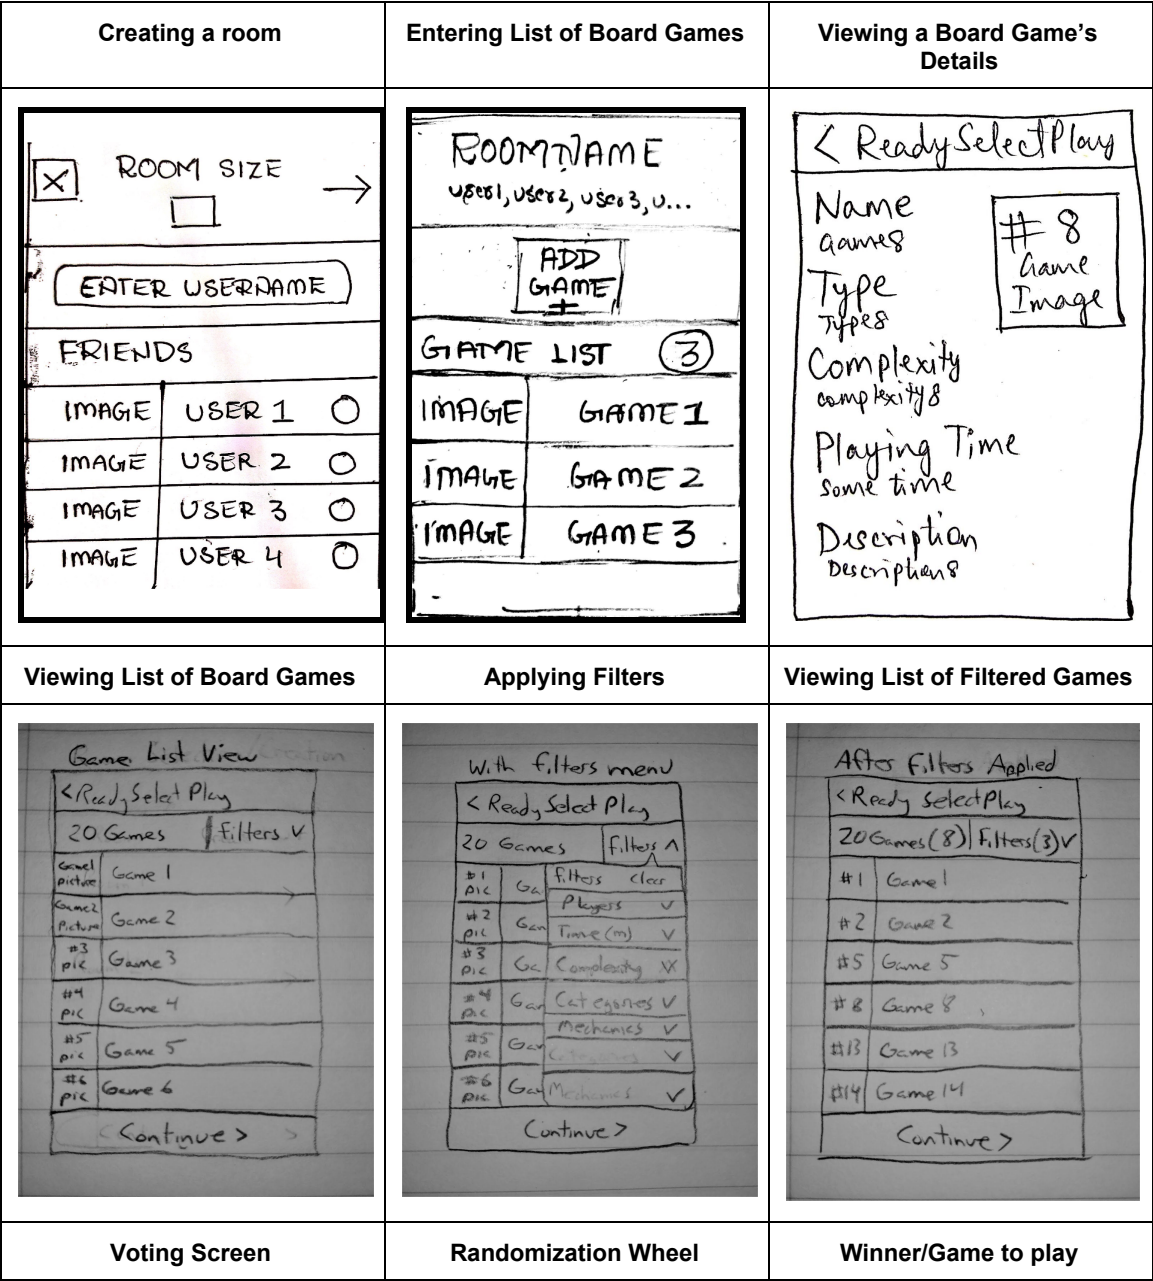 Creating a room
Entering List of Board Games
Viewing a Board Game's
Details
X
ROOM SIZE
→
ENTER USERNAME
FRIENDS
IMAGE USER 1
IMAGE USER 2
IMAGE USER 3
IMAGE USER 4
ROOMNAME
user1, user2, user3, u...
ADD
GAME
+
GAME LIST 3
IMAGE GAME 1
IMAGE GAME 2
IMAGE GAME 3
< ReadySelectPlay
Name
Game8
# 8
Game
Image
Type
Type8
Complexity
complexity8
Playing Time
some time
Description
Description8
Viewing List of Board Games
Applying Filters
Viewing List of Filtered Games
Game List View
< Ready Select Play
20 Games Filters V
Game1
picture
Game 1
Game2
Picture
Game 2
#3
pic
Game 3
#4
pic
Game 4
#5
pic
Game 5
#6
pic
Game 6
Continue >
With filters menu
< Ready Select Play
20 Games Filters ^
#1
pic
Ga
#2
pic
Gam
#3
pic
Ga
#4
pic
Gam
#5
pic
Gam
#6
pic
Gam
Filters Clear
Players V
Time (m) V
Complexity V
Categories V
Mechanics V
Categories V
Mechanics V
Continue >
After Filters Applied
< Ready SelectPlay
20 Games (8) Filters (3) V
#1 Game 1
#2 Game 2
#5 Game 5
#8 Game 8
#13 Game 13
#14 Game 14
Continue >
Voting Screen
Randomization Wheel
Winner/Game to play